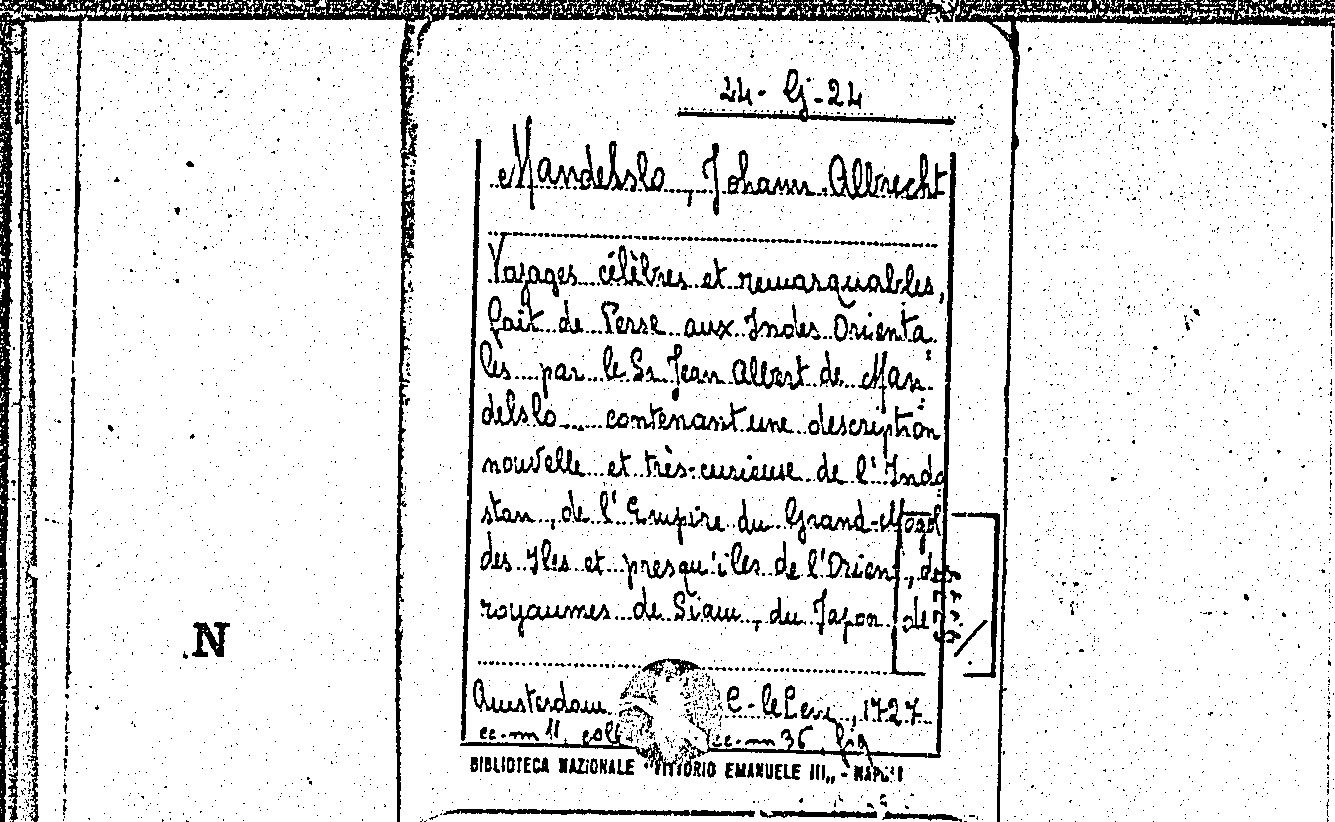 24-G-24
Mandelslo, Johann Albrecht
Voyages célèbres et remarquables,
fait de Perse aux Indes Orienta
les par le Sr Jean Albert de Man
delslo... contenant une description
nouvelle et très-curieuse de l'Indo
stan, de l'Empire du Grand-Mogol
des Iles et presqu'iles de l'Orient, des
royaumes de Siam, du Japon de
N
Amsterdam C. le Cene, 1727
cc. nn 11, coll cc. nn 36, fig
BIBLIOTECA NAZIONALE "VITTORIO EMANUELE III„ - NAPOLI